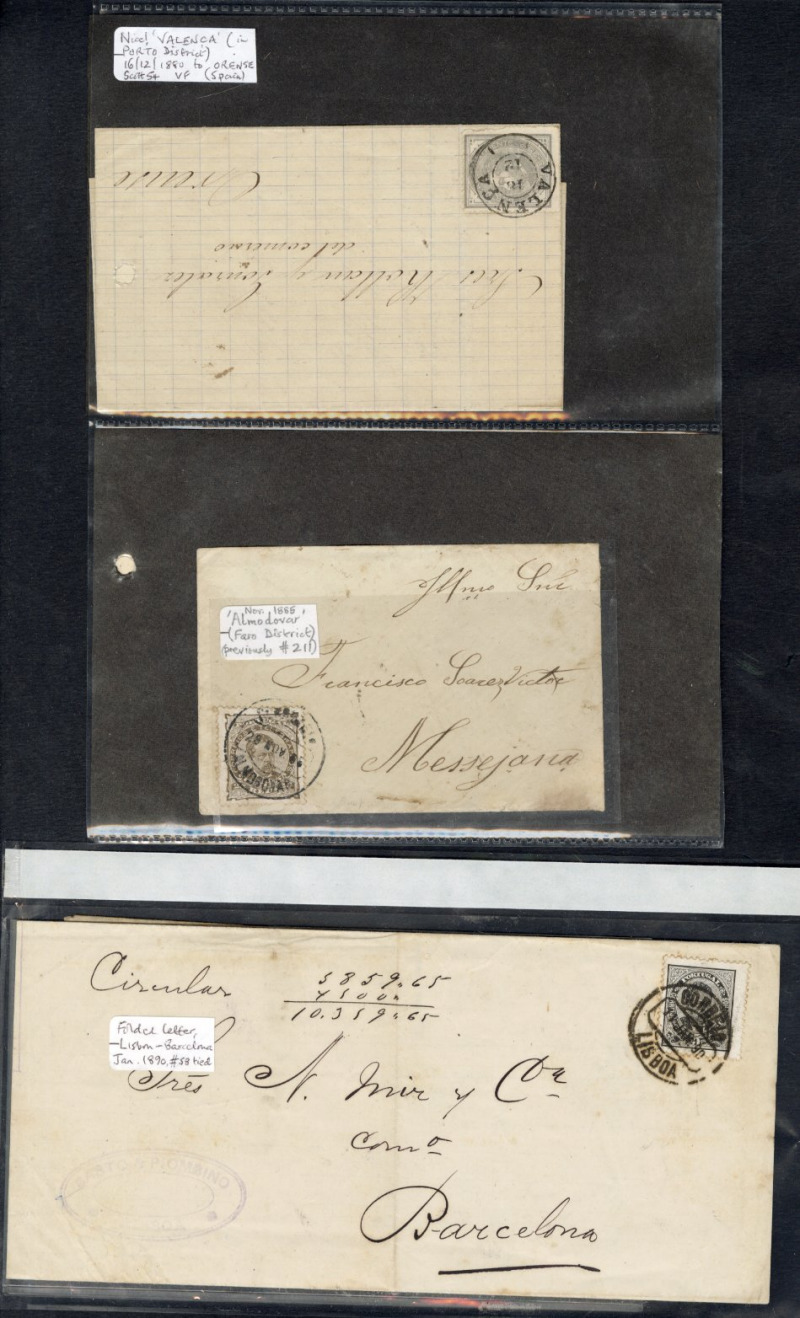 Nice! 'VALENCA' (in
PORTO District)
16/12/1880 to ORENSE
Scott 54 VF (Spain)
VALENÇA
16
12
Orense
del comercio
Sres Rollan y Gonzalez
Nov. 1885,
'Almodovar
(Faro District)
(previously #211)
Illmo Snr
Francisco Soarez Victor
Messejana
ALMODOVAR
Circular
5859.65
4500"
10.359"65
Folded Letter,
Lisbon - Barcelona
Jan. 1890, #58 tied
Srés N. Mir y Cia
Como
Barcelona
PORTUGAL
CORREIO
LISBOA
PIOMBINO